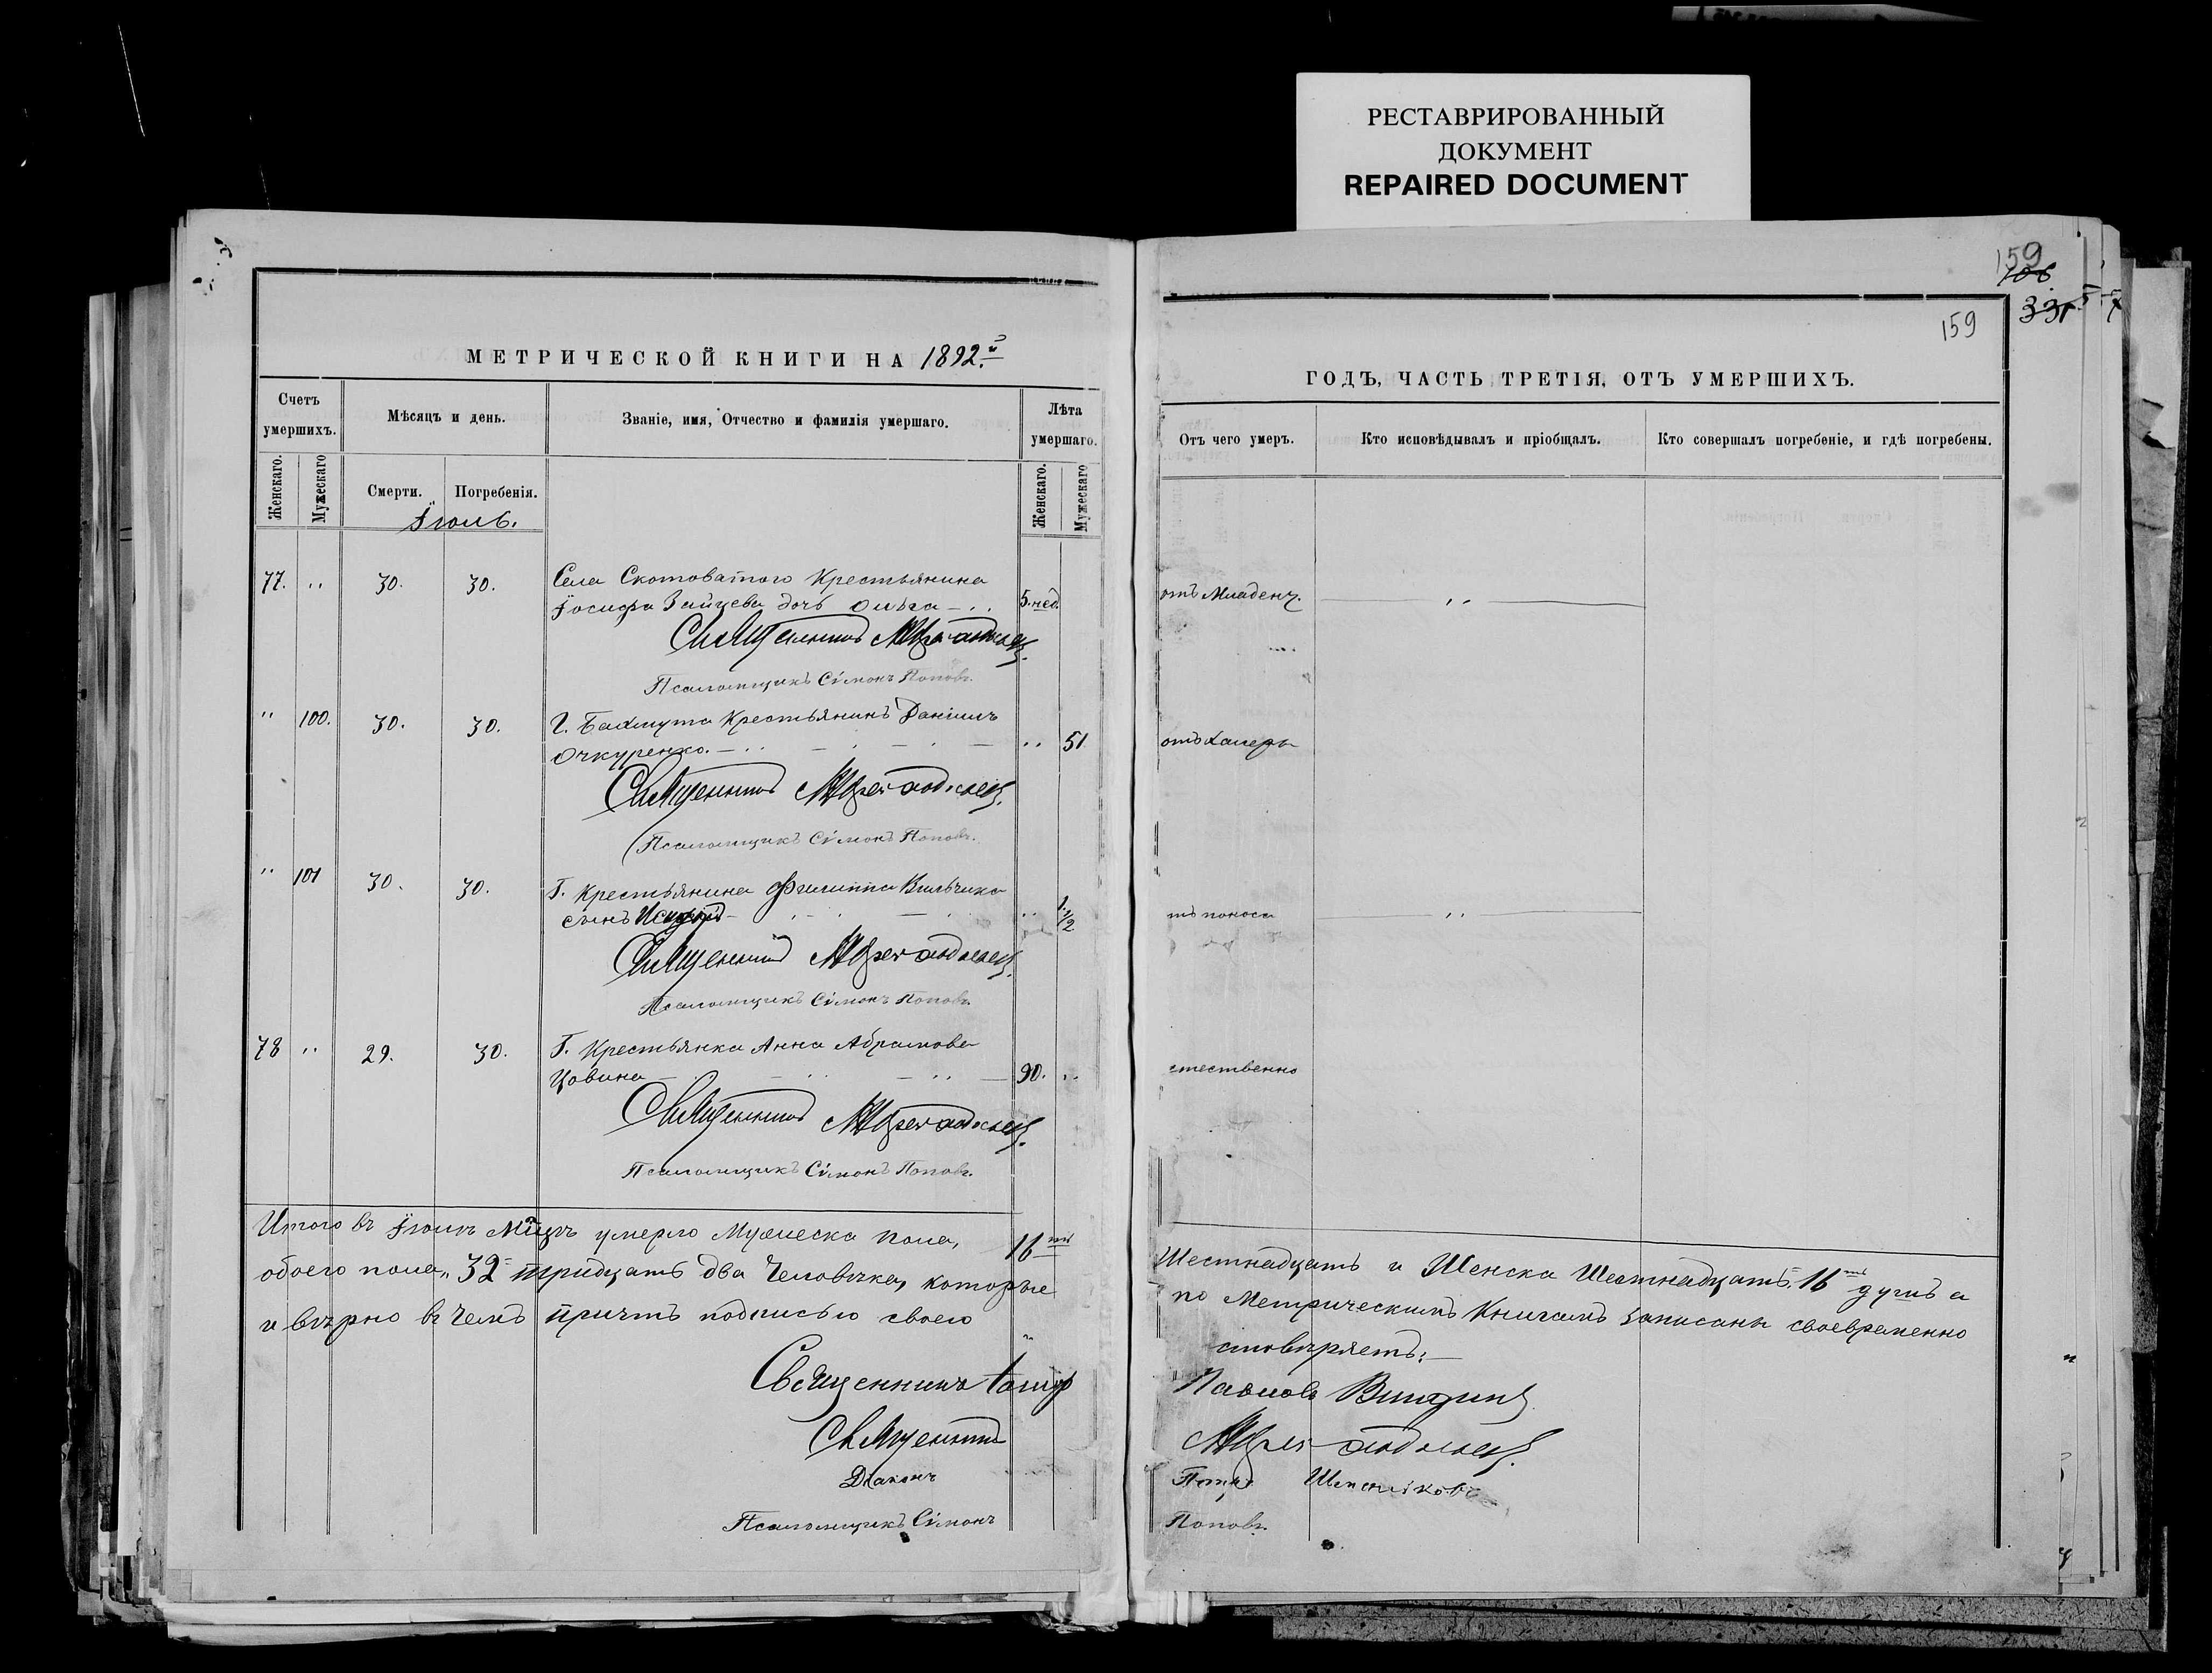 РЕСТАВРИРОВАННЫЙ
ДОКУМЕНТ
REPAIRED DOCUMENT
159
106
331
159
МЕТРИЧЕСКОЙ КНИГИ НА 1892.й
ГОДЪ, ЧАСТЬ ТРЕТІЯ, ОТЪ УМЕРШИХЪ.
Счетъ умершихъ.
Мѣсяцъ и день.
Званіе, имя, Отчество и фамилія умершаго.
Лѣта умершаго.
Отъ чего умеръ.
Кто исповѣдывалъ и пріобщалъ.
Кто совершалъ погребеніе, и гдѣ погребены.
Женскаго.
Мужескаго
Смерти.
Погребенія.
Женскаго.
Мужескаго
Іюль.
77. " 30. 30. Села Скотоватого Крестьянина
Іосифа Зайцева дочь Ольга 5.нед. отъ Младенч. "
Священникъ
Псаломщикъ Сімонъ Поповъ.
" 100. 30. 30. Г. Бахмута Крестьянинъ Даніилъ
Очкуренко. " 51 отъ Холеры
Священникъ
Псаломщикъ Сімонъ Поповъ.
" 101 30. 30. Г. Крестьянина Филиппа Вильчика
сынъ " 1 1/2 тъ поноса "
Священникъ
Псаломщикъ Сімонъ Поповъ.
78 " 29. 30. Г. Крестьянка Анна Абрамова
90. " стественно
Священникъ
Псаломщикъ Сімонъ Поповъ.
Итого въ Іюлѣ Мцѣ умерло Мужеска пола, 16ть Шестнадцать и Женска Шестнадцать 16ть душъ а
обоего пола, 32 тридцать два Человѣка, которые по Метрическимъ Книгамъ записаны своевременно
и вѣрно въ Чемъ причтъ подписью своею стовѣряетъ:
Священникъ Павловъ
Священникъ
Діаконъ Петръ
Псаломщикъ Сімонъ Поповъ.